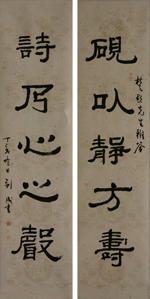 硯以靜方壽
先生
詩乃心之聲
丁亥